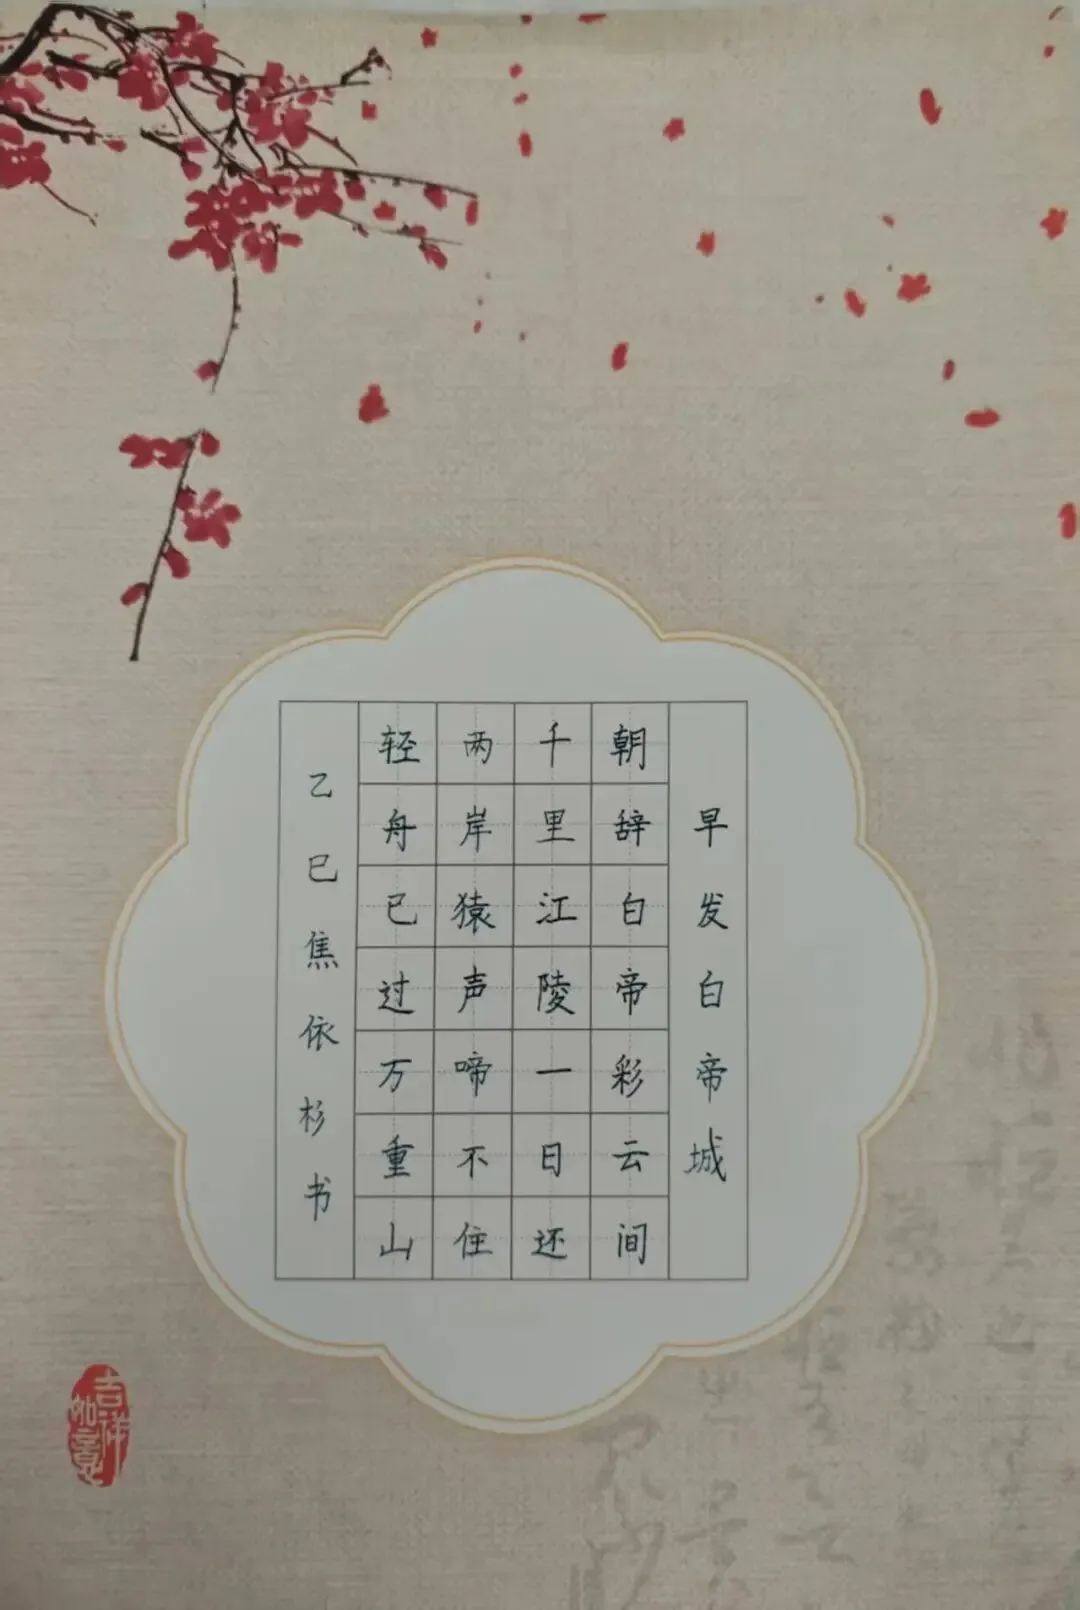 早发白帝城
朝辞白帝彩云间
千里江陵一日还
两岸猿声啼不住
轻舟已过万重山
乙巳焦依杉书
吉祥
如意